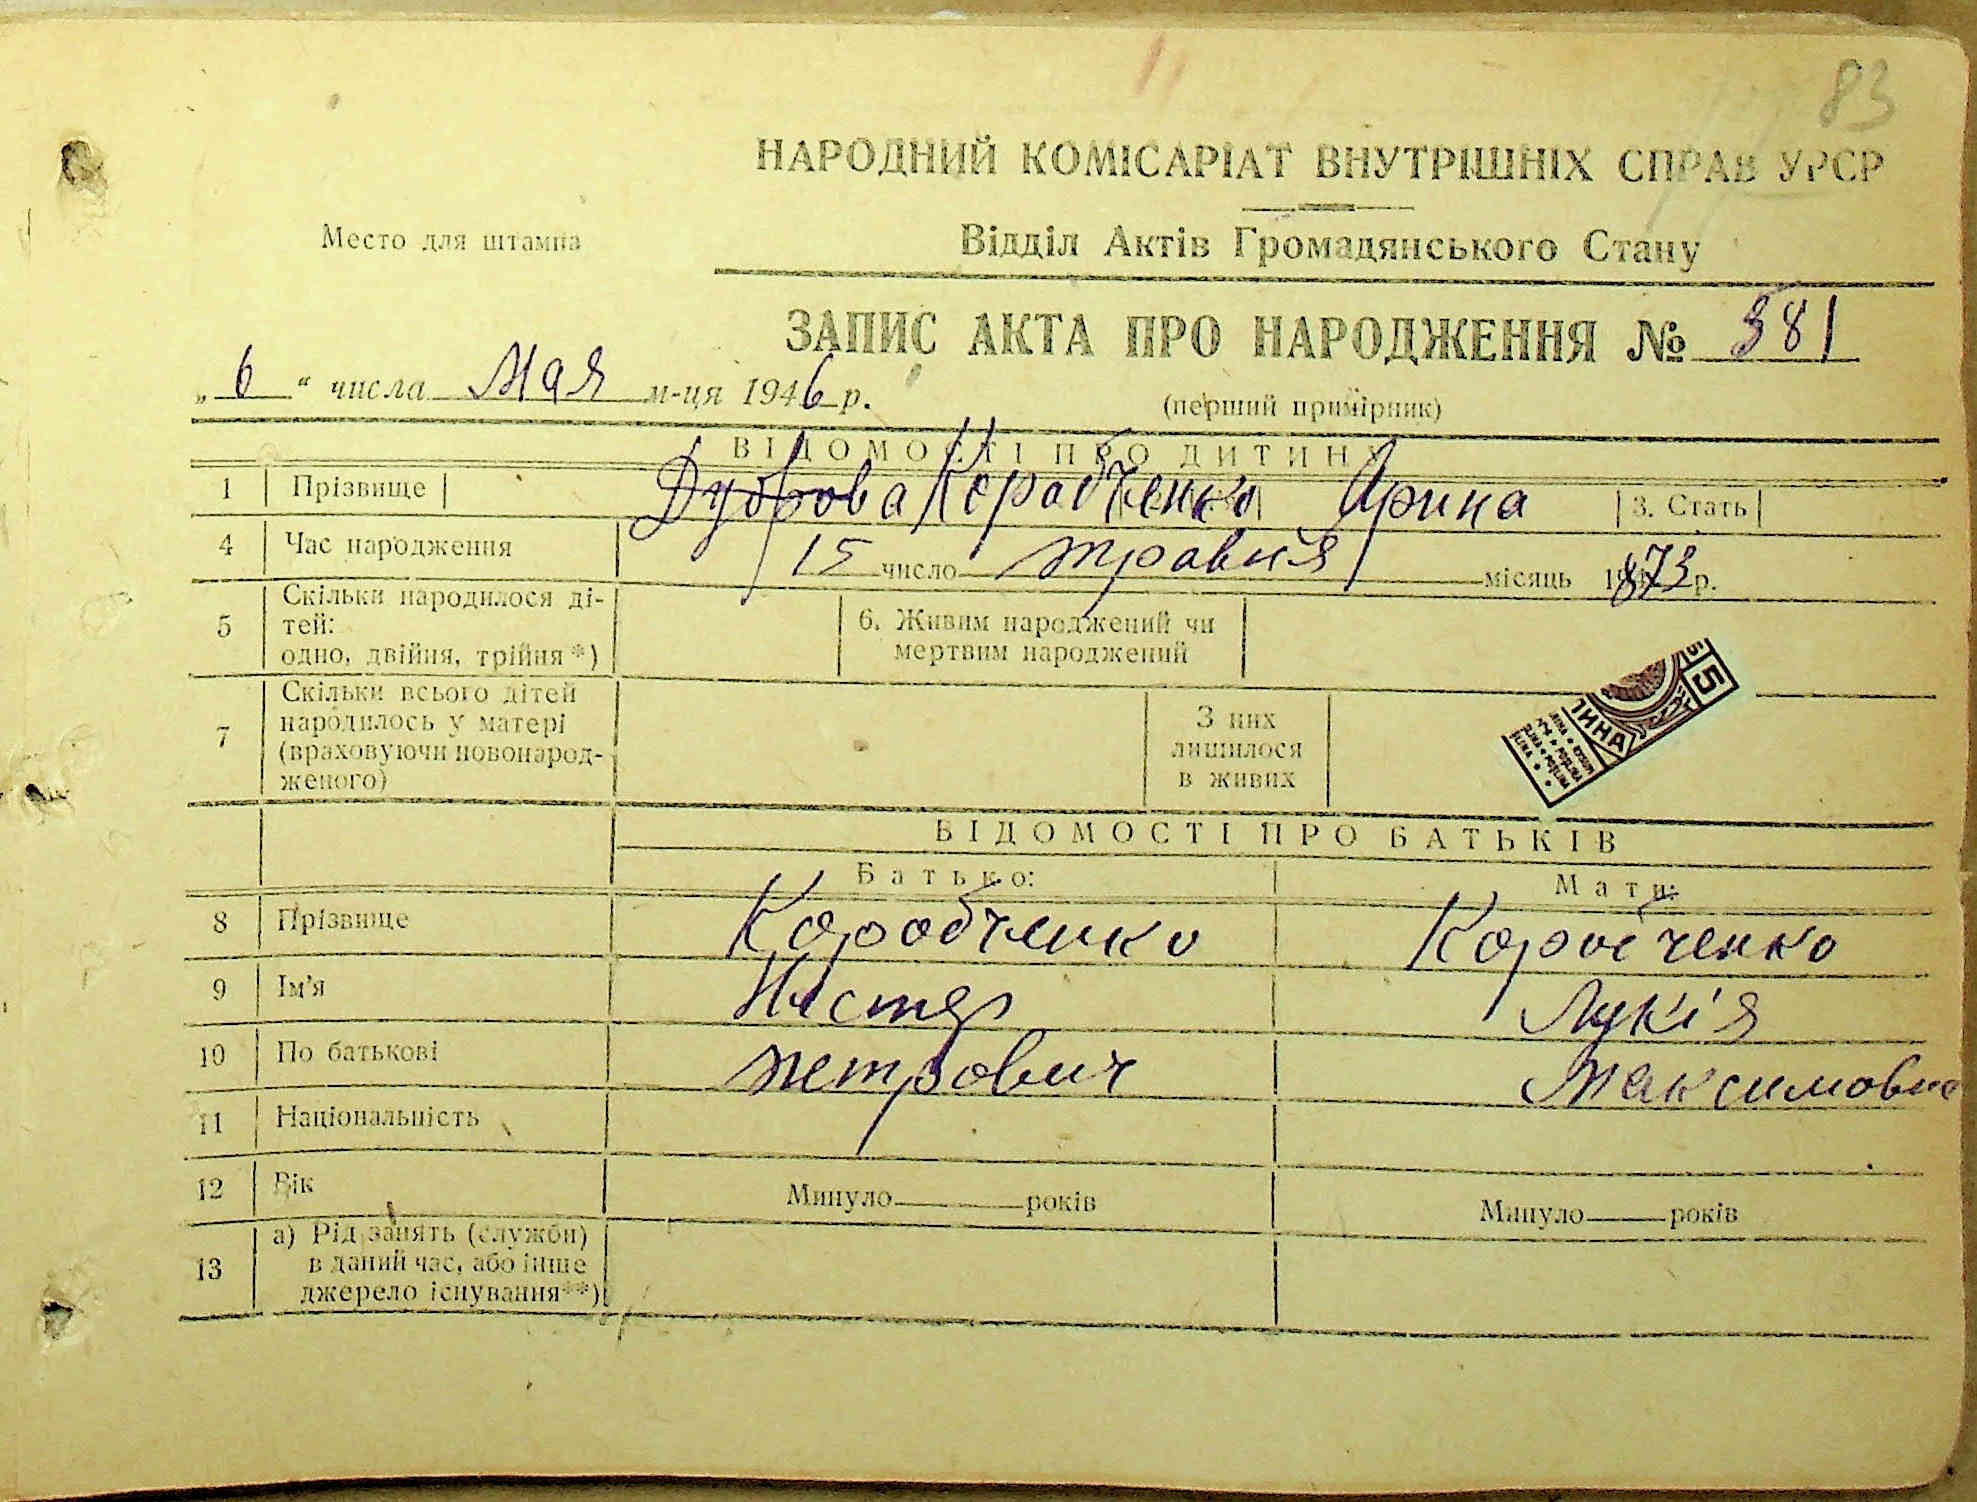 83
НАРОДНИЙ КОМІСАРІАТ ВНУТРІШНІХ СПРАВ УРСР
Место для штампа
Відділ Актів Громадянського Стану
ЗАПИС АКТА ПРО НАРОДЖЕННЯ № 581
„ 6 “ числа Мая м-ця 1946 р.
(перший примірник)
ВІДОМОСТІ ПРО ДИТИНУ
1 Прізвище Дуброва Коробченко Ярина 3. Стать
4 Час народження 15 число травня місяць 1873 р.
5 Скільки народилося ді-
тей:
одно, двійня, трійня *)
6. Живим народжений чи
мертвим народжений
7 Скільки всього дітей
народилось у матері
(враховуючи новонарод-
женого)
З них
лишилося
в живих
ВІДОМОСТІ ПРО БАТЬКІВ
Батько: Мати:
8 Прізвище Коробченко Коробченко
9 Ім'я Нестер Лукія
10 По батькові Петрович Максимовна
11 Національність
12 Вік Минуло ___ років Минуло ___ років
13 а) Рід занять (служби)
в даний час, або інше
джерело існування **)